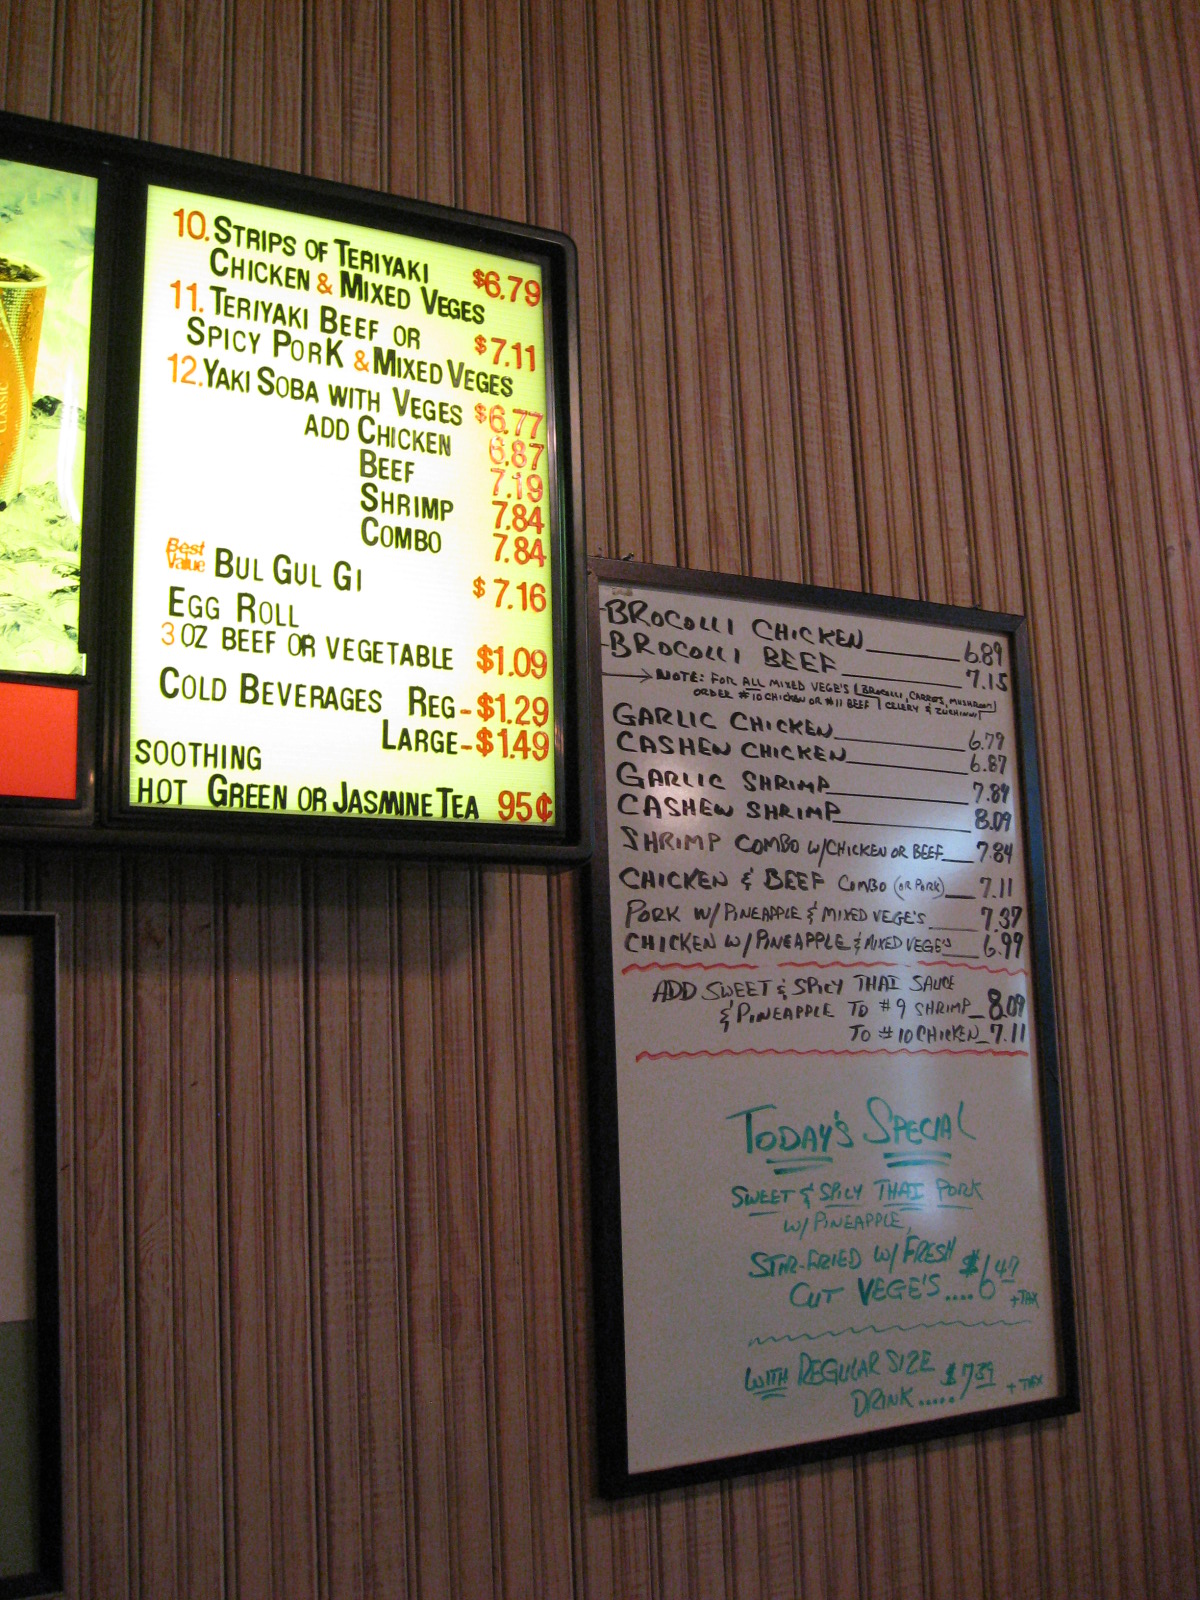 10. STRIPS OF TERIYAKI
CHICKEN & MIXED VEGES $6.79
11. TERIYAKI BEEF OR
SPICY PORK & MIXED VEGES $7.11
12. YAKI SOBA WITH VEGES $6.77
ADD CHICKEN 6.87
BEEF 7.19
SHRIMP 7.84
COMBO 7.84
Best Value BUL GUL GI $7.16
EGG ROLL
3 OZ BEEF OR VEGETABLE $1.09
COLD BEVERAGES REG-$1.29
LARGE-$1.49
SOOTHING
HOT GREEN OR JASMINE TEA 95¢
CLASSIC
BROCOLLI CHICKEN 6.89
BROCOLLI BEEF 7.15
→ NOTE: FOR ALL MIXED VEGE'S (BROCOLLI, CARROTS, MUSHROOM
ORDER #10 CHICKEN OR #11 BEEF CELERY & ZUCHINNI)
GARLIC CHICKEN 6.79
CASHEW CHICKEN 6.87
GARLIC SHRIMP 7.89
CASHEW SHRIMP 8.09
SHRIMP COMBO W/CHICKEN OR BEEF 7.84
CHICKEN & BEEF COMBO (OR PORK) 7.11
PORK W/PINEAPPLE & MIXED VEGE'S 7.37
CHICKEN W/PINEAPPLE & MIXED VEGE'S 6.99
ADD SWEET & SPICY THAI SAUCE
& PINEAPPLE TO #9 SHRIMP 8.09
TO #10 CHICKEN 7.11
TODAY'S SPECIAL
SWEET & SPICY THAI PORK
W/PINEAPPLE,
STIR-FRIED W/ FRESH
CUT VEGE'S.... $6.47 +TAX
WITH REGULAR SIZE
DRINK..... $7.39 +TAX